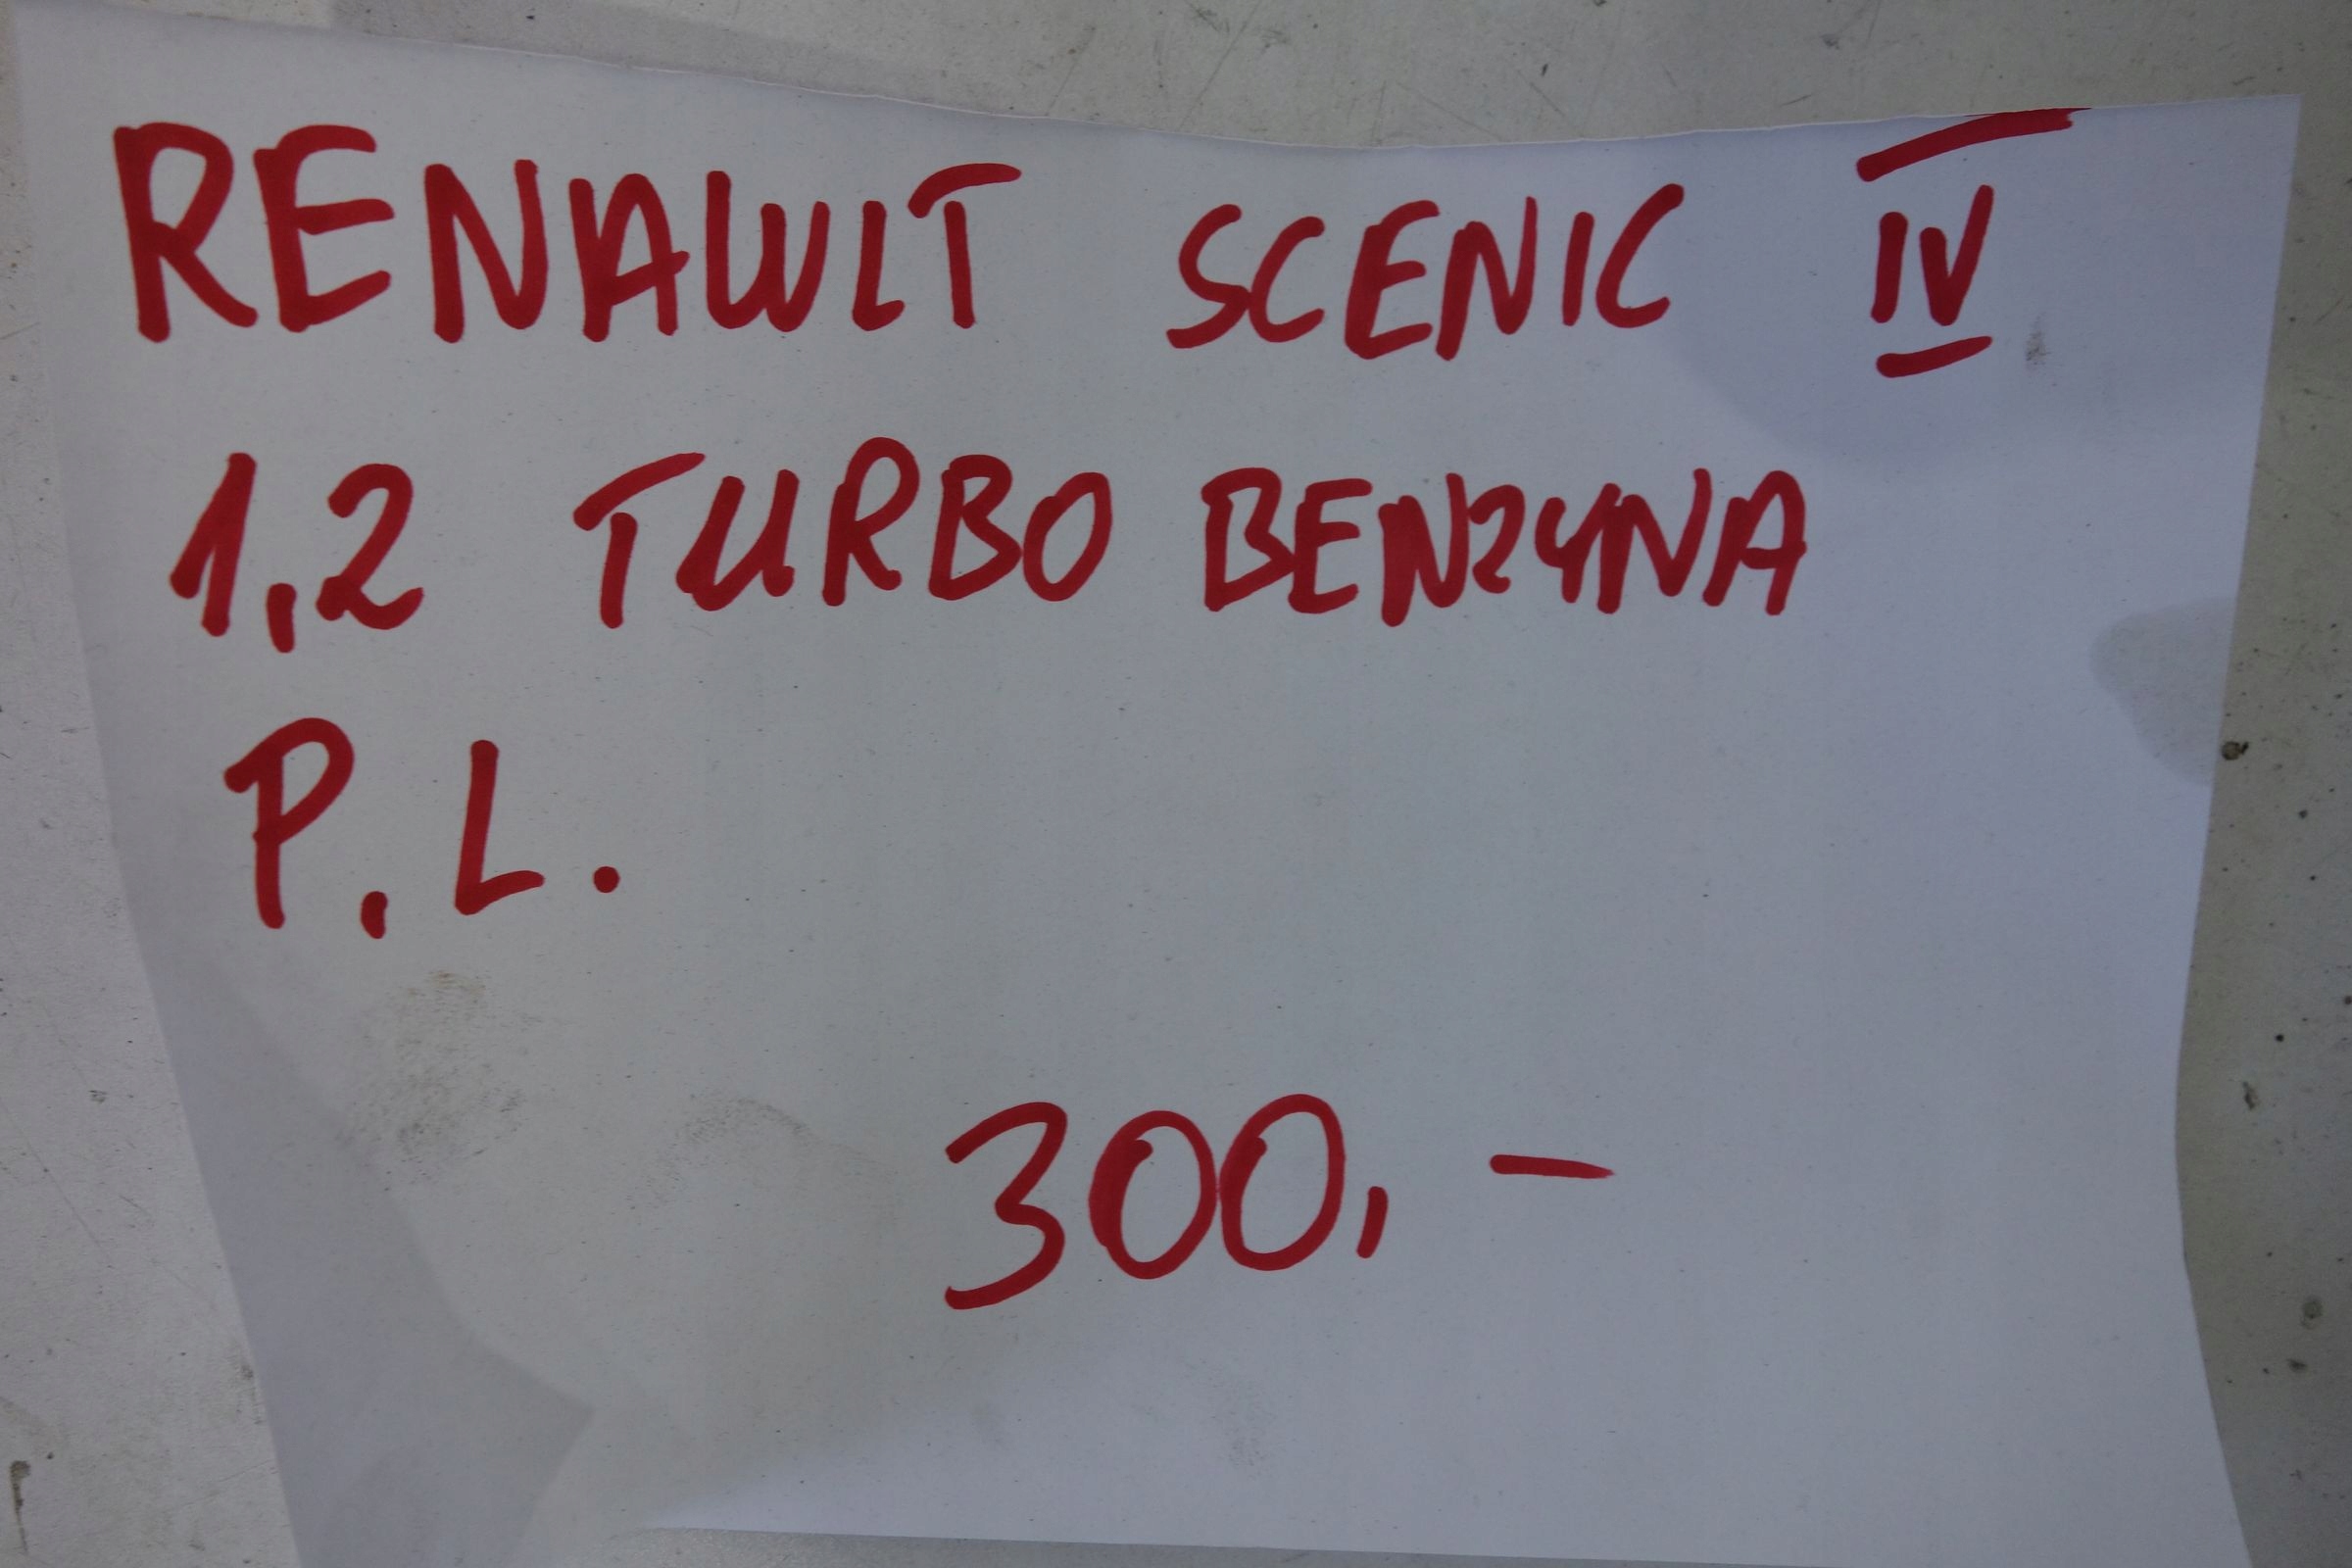 RENAULT SCENIC IV
1,2 TURBO BENZYNA
P.L.
300,-